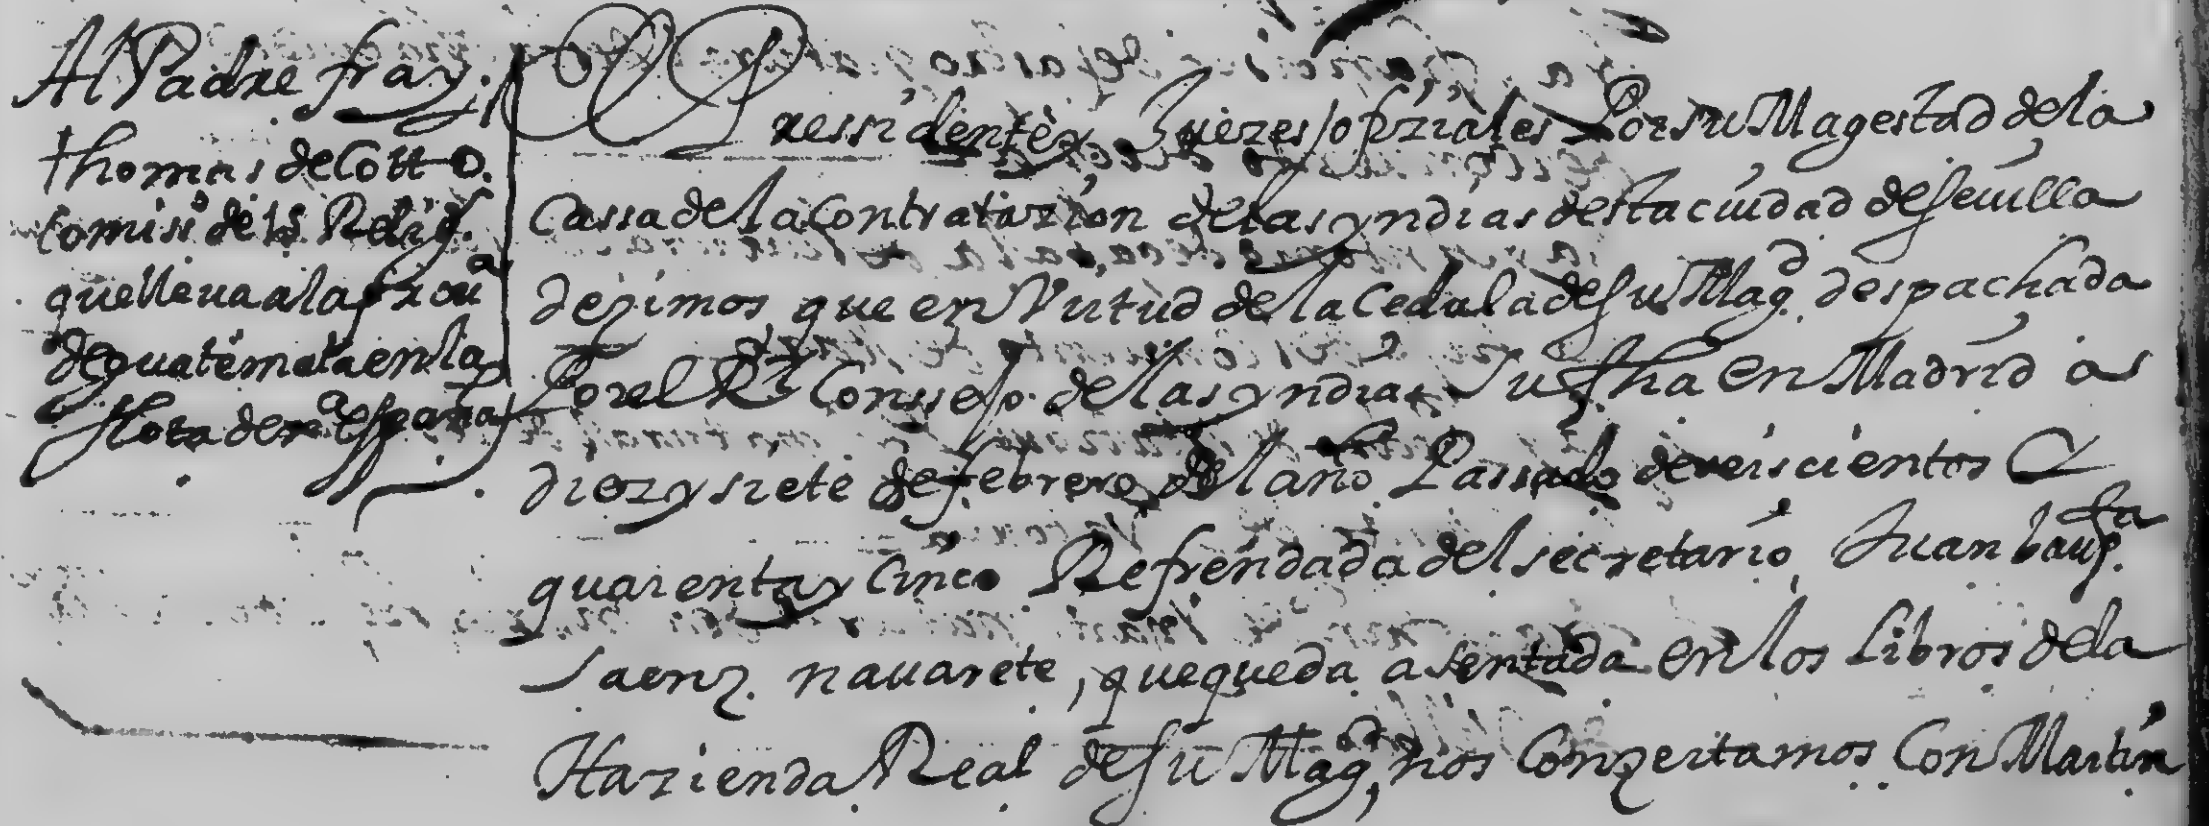 Al Padre fray
thomas de Cotto.
comisº de ls Relig.
que lleua a la prouª
de guatemala en la
flota de nª españa
Pressidente y Juezes ofiziales Por su Magestad de la
Cassa de la Contratazion de las yndias desta ciudad de seuilla
dezimos que en Virtud de la Cedula de su Magd despachada
Por el Rl Conssejo de las yndias su fha en Madrid a s
diez y siete de febrero del año Passado de seiscientos y
quarenta y cinco Refrendada del secretario Juan baupta
saenz nauarete, que queda asentada en los Libros de la
Hazienda Real de su Magd, nos Conzertamos Con Martin